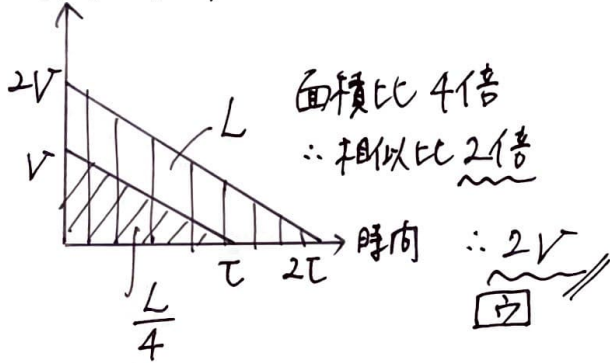 2V
V
L
L/4
τ
2τ
時間
面積比 4倍
∴相似比 2倍
∴ 2V
ウ